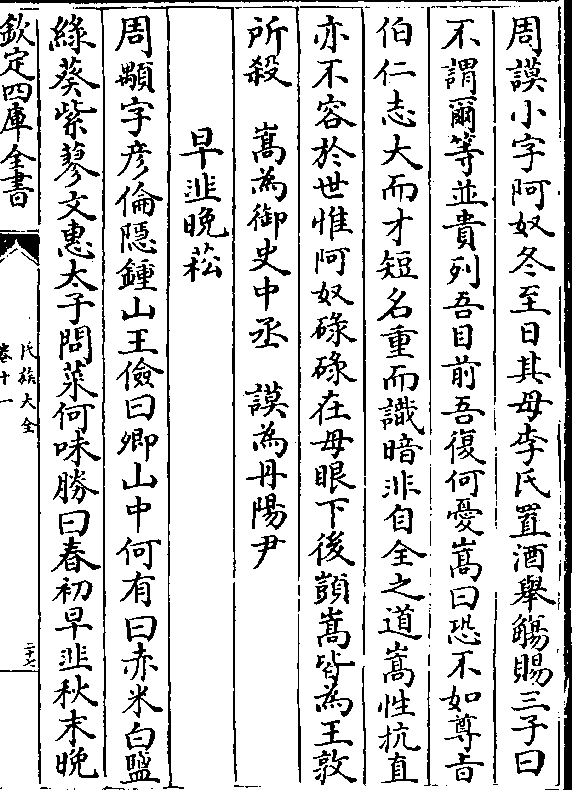 周謨小字阿奴冬至日其母李氏置酒舉觴賜三子曰
不謂爾等並貴列吾目前吾復何憂嵩曰恐不如尊㫖
伯仁志大而才短名重而識暗非自全之道嵩性抗直
亦不容於世惟阿奴碌碌在母眼下後顗嵩皆為王敦
所殺　嵩為御史中丞　謨為丹陽尹
早韭晚菘
周顒字彥倫隱鍾山王儉曰卿山中何有曰赤米白鹽
綠葵紫蓼文惠太子問菜何味勝曰春初早韭秋末晚
欽定四庫全書
氏族大全
卷十一